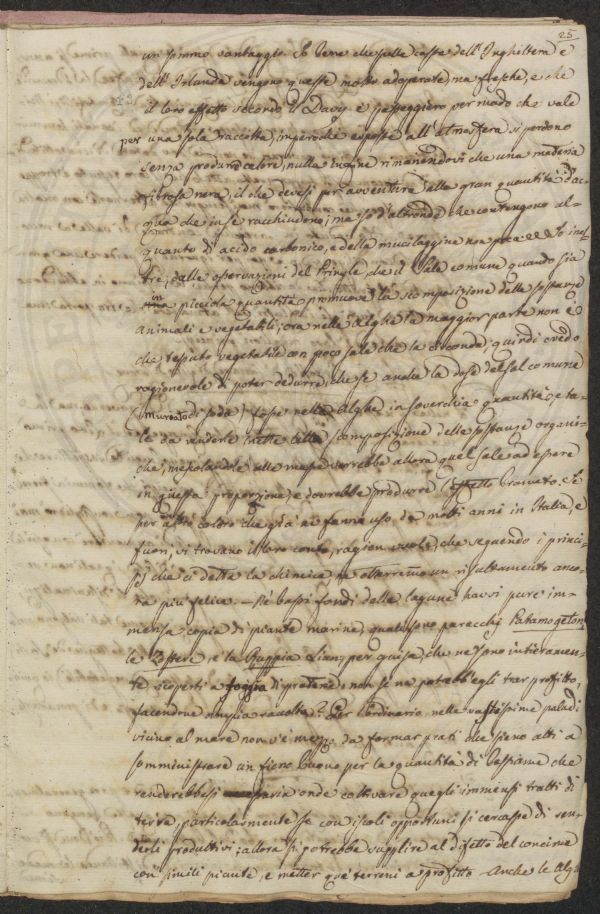 25
un sommo vantaggio. È vero che sulle coste dell'Inghilterra e
dell'Irlanda vengono queste molto adoperate ma fresche, e che
il loro effetto secondo il Davy è passeggiero per modo che vale
per una sola raccolta, imperochè esposte all'atmosfera si perdono
senza produrre calore, nulla in fine rimanendovi che una materia
fibrosa nera, il che devesi per avventura alla gran quantità d'ac-
qua che in se racchiudono; ma so d'altronde che contengono al-
quanto di acido carbonico, e della mucilaggine non poca. So inol-
tre, dalle osservazioni del Pringle, che il Sale comune quando sia
in picciola quantità promuove la scomposizione delle sostanze
animali e vegetabili; ora nelle Alghe la maggior parte non è
che tessuto vegetabile con poco sale che la circonda, quindi credo
ragionevole di poter dedurre, che se anche la dose del sal comune
(Muriato di soda) fosse nelle Alghe in soverchia quantità, e ta-
le da renderle inette alla scomposizione delle sostanze organi-
che, mescolandole alle terre verrebbe allora quel sale ad essere
in questa proporzione, e dovrebbe produrre l'effetto bramato. Se
per altro coloro che già ne fanno uso da molti anni in Italia, e
fuori, vi trovano il loro conto, ragion vuole, che seguendo i princi-
pj che ci detta la chimica, ne otterremo un risultamento anco-
ra più felice. — Ne' bassi fondi delle lagune havvi pure im-
mensa copia di piante marine, quali sono parecchi Potamogeton
le Zostere, e la Ruppia Linn; per guisa, che ne sono intieramen-
te coperti a foggia di praterie; non se ne potrebb'egli trar profitto,
facendone ampia raccolta? Per l'ordinario nelle vastissime paludi
vicino al mare non v'è mezzo da formar prati che sieno atti a
somministrare un fieno buono per la quantità di bestiame che
renderebbesi necessaria onde coltivare quegli immensi tratti di
terre, particolarmente se con iscoli opportuni si cercasse di ren-
derli produttivi; allora si potrebbe supplire al difetto del concime
con simili piante, e metter que' terreni a profitto. Anche le Alghe